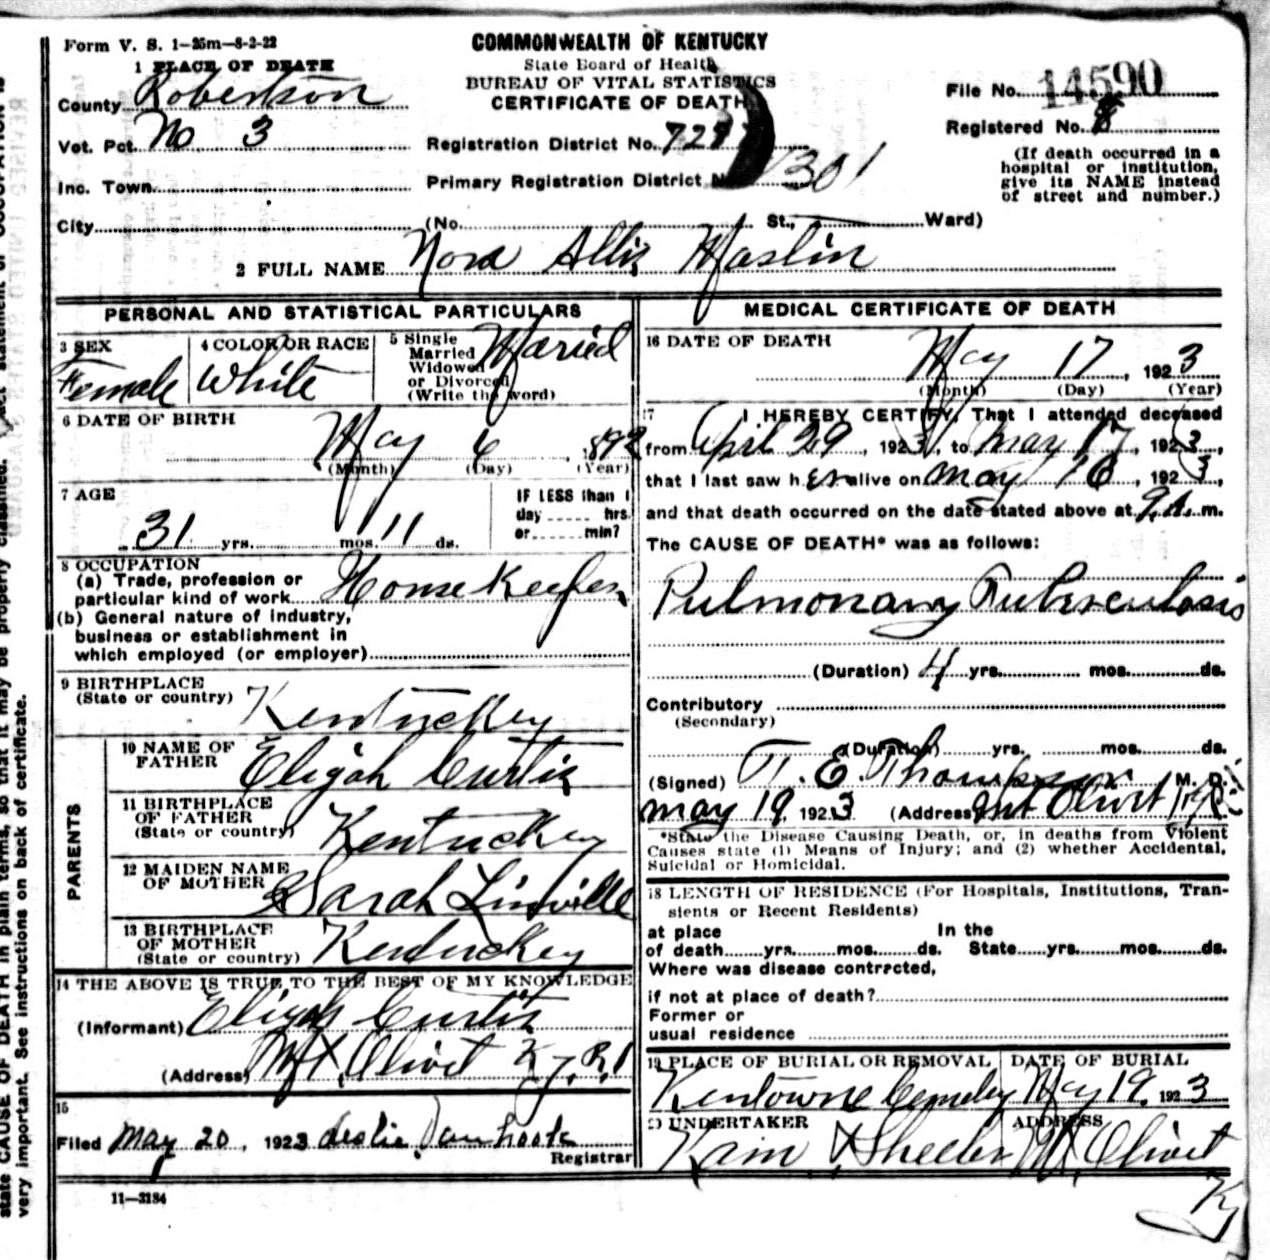 Form V. S. 1-25m-8-2-22
COMMONWEALTH OF KENTUCKY
State Board of Health
BUREAU OF VITAL STATISTICS
CERTIFICATE OF DEATH
1 PLACE OF DEATH
County Robertson
Vot. Pct. No 3
Inc. Town
City (No. St., Ward)
Registration District No.
Primary Registration District N 301
File No. 14590
Registered No. 8
(If death occurred in a
hospital or institution,
give its NAME instead
of street and number.)
2 FULL NAME Nora Allis Maslin
PERSONAL AND STATISTICAL PARTICULARS
3 SEX
Female
4 COLOR OR RACE
White
5 Single
Married
Widowed
or Divorced
(Write the word)
Maried
6 DATE OF BIRTH
May 6, 1892
(Month) (Day) (Year)
7 AGE
31 yrs. mos. 11 ds.
IF LESS than 1
day hrs.
or min?
8 OCCUPATION
(a) Trade, profession or
particular kind of work House Keeper
(b) General nature of industry,
business or establishment in
which employed (or employer)
9 BIRTHPLACE
(State or country) Kentuckey
PARENTS
10 NAME OF
FATHER Elijah Curtis
11 BIRTHPLACE
OF FATHER
(State or country) Kentuckey
12 MAIDEN NAME
OF MOTHER Sarah Linville
13 BIRTHPLACE
OF MOTHER
(State or country) Kentuckey
14 THE ABOVE IS TRUE TO THE BEST OF MY KNOWLEDGE
(Informant) Elijah Curtis
(Address) Mt Olivit Ky. R.1
15
Filed May 20, 1923 Leslie Vanhook
Registrar
11-3184
MEDICAL CERTIFICATE OF DEATH
16 DATE OF DEATH
May 17, 1923
(Month) (Day) (Year)
17 I HEREBY CERTIFY, That I attended deceased
from April 29, 1923, to May 17, 1923,
that I last saw her alive on May 16, 1923,
and that death occurred on the date stated above at 9 A. m.
The CAUSE OF DEATH* was as follows:
Pulmonary Tuberculosis
(Duration) 4 yrs. mos. ds.
Contributory
(Secondary)
(Duration) yrs. mos. ds.
(Signed) T. E. Thompson M. D.
May 19, 1923 (Address) Mt Olivit Ky
*State the Disease Causing Death, or, in deaths from Violent
Causes state (1) Means of Injury; and (2) whether Accidental,
Suicidal or Homicidal.
18 LENGTH OF RESIDENCE (For Hospitals, Institutions, Tran-
sients or Recent Residents)
at place In the
of death yrs. mos. ds. State yrs. mos. ds.
Where was disease contracted,
if not at place of death?
Former or
usual residence
19 PLACE OF BURIAL OR REMOVAL
Kentowne Cemetey
DATE OF BURIAL
May 19, 1923
20 UNDERTAKER
Kain & Sheeler
ADDRESS
Mt Olivit
Ky
state CAUSE OF DEATH in plain terms, so that it may be properly classified.
very important. See instructions on back of certificate.